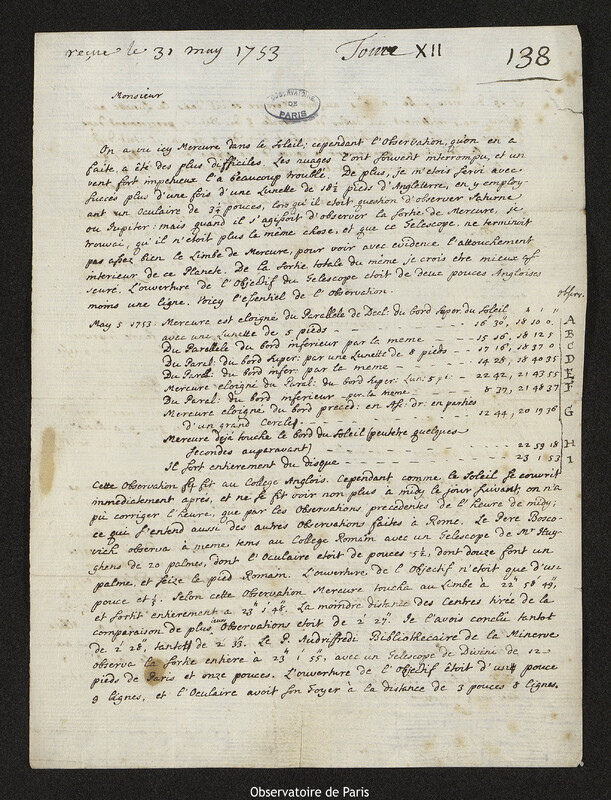 reçue le 31 may 1753 Tome XII 138
OBSERVATOIRE DE PARIS
Monsieur
On a vu icy Mercure dans le Soleil; cependant l'Observation, qu'on en a
faite, a été des plus difficiles. Les nuages l'ont souvent interrompu, et un
vent fort impetueux l'a beaucoup troublé. De plus, je m'etois servi avec
succès plus d'une fois d'une Lunette de 18½ pieds d'Angleterre, en y employ-
ant un Oculaire de 3¼ pouces, lors qu'il etoit question d'observer Saturne
ou Jupiter: mais quand il s'agissoit d'observer la Sortie de Mercure, je
trouvai, qu'il n'etoit plus la même chose, et que ce Telescope, ne terminoit
pas assez bien le Limbe de Mercure, pour voir avec evidence l'attouchement
interieur de ce Planete. De la Sortie totale du même je crois etre mieux as-
seuré. L'ouverture de l'Objectif du Telescope etoit de deux pouces Angloises
moins une ligne. Voicy l'essentiel de l'Observation.
Observ.
May 5 1753. Mercure est eloigné du Parallele de Decl: du bord super. du Soleil
avec une Lunette de 5 pieds 16 30, 18 10 0 A
Du Parallele du bord inferieur par la meme 15 16, 18 12 5 B
Du Paral: du bord super: par une Lunette de 8 pieds 17 16, 18 37 0 C
Du Paral: du bord infer: par la meme 14 28, 18 40 35 D
Mercure eloigné du Paral: du bord super: Lun: 5 p. 22 42, 21 43 55 E
Du Paral: du bord inferieur par la meme 8 37, 21 48 37 F
Mercure eloigné du bord preced: en As: dr: en parties
d'un grand Cercle 12 44, 20 19 36 G
Mercure déjà touche le bord du Soleil (peutetre quelques
secondes auparavant) 22 59 18 H
Il sort entierement du disque 23 1 53 I
Cette Observation se fit au College Anglois. Cependant comme le Soleil se couvrit
immediatement après, et ne se fit voir non plus à midy le jour suivant, on n'a
pû corriger l'heure, que par les Observations precedentes de l'heure de midy;
ce qui s'entend aussi des autres Observations faites à Rome. Le Pere Bosco-
vich observa à meme tems au College Romain avec un Telescope de Mr Huy-
ghens de 20 palmes, dont l'Oculaire etoit de pouces 5½, dont douze font un
palme, et seize le pied Romain. L'ouverture de l'Objectif n'etoit que d'un
pouce et ½. Selon cette Observation Mercure toucha au Limbe à 22 58 49,
et sortit entierement à 23 1 48. La moindre distance des Centres tirée de la
comparaison de plusieurs Observations etoit de 2 27. Je l'avois conclu tantot
de 2 28, tantot de 2 33. Le P. Audiffredi Bibliothecaire de la Minerve
observa la sortie entiere à 23 1 55, avec un Telescope de Divini de 12
pieds de Paris et onze pouces. L'ouverture de l'Objectif étoit d'un pouce
9 lignes, et l'Oculaire avoit son foyer à la distance de 3 pouces 8 lignes.
Observatoire de Paris